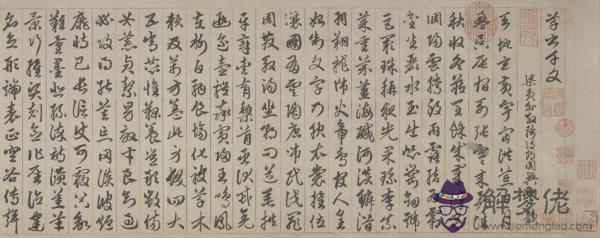 草書千文
梁員外散騎侍郎周興嗣次韻
天地玄黃宇宙洪荒日月
盈昃辰宿列張寒來暑往
秋收冬藏閏餘成歲律呂
調陽雲騰致雨露結為霜
金生麗水玉出崑岡劍號
巨闕珠稱夜光菓珍李柰
菜重芥薑海鹹河淡鱗潛
羽翔龍師火帝鳥官人皇
始制文字乃服衣裳推位
讓國有虞陶唐弔民伐罪
周發殷湯坐朝問道垂拱
平章愛育黎首臣伏戎羌
遐邇壹體率賓歸王鳴鳳
在樹白駒食場化被草木
賴及萬方蓋此身髮四大
五常恭惟鞠養豈敢毀傷
女慕貞潔男效才良知過
必改得能莫忘罔談彼短
靡恃己長信使可覆器欲
難量墨悲絲染詩讚羔羊
景行維賢剋念作聖德建
名立形端表正空谷傳聲
解夢佬
jiemenglao.com